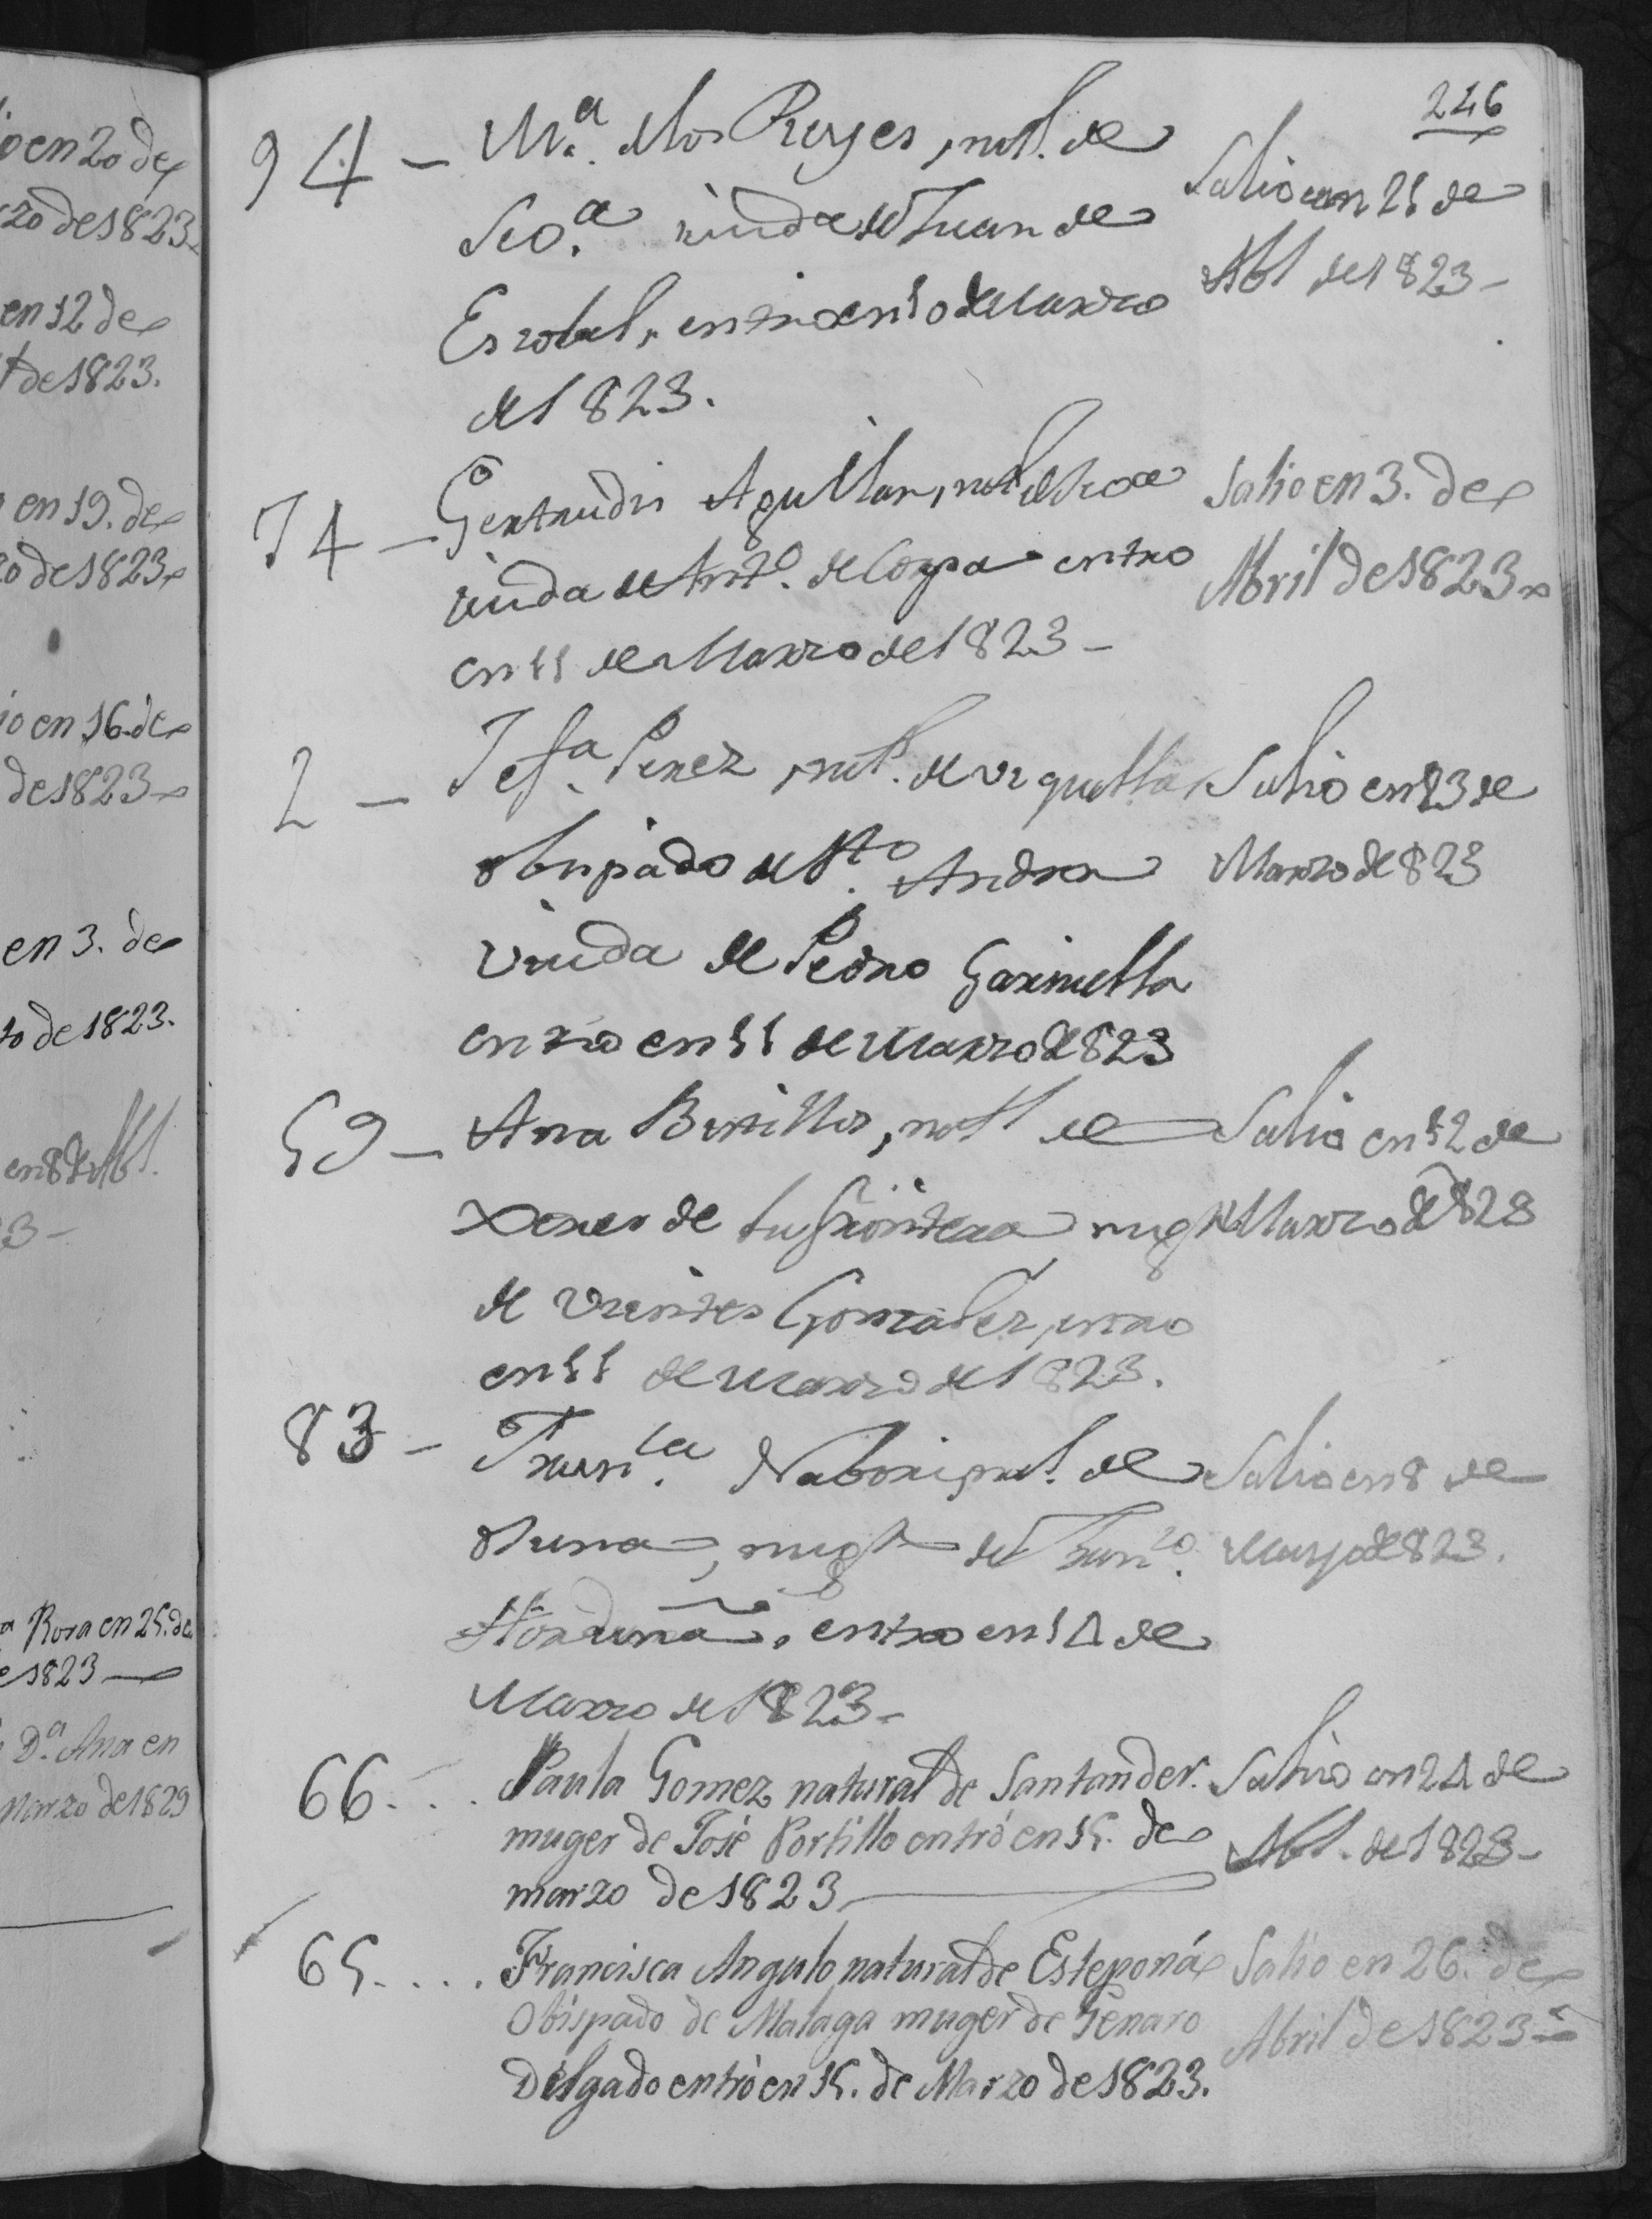 246
94 - M.ª de los Reyes, nat.l de
Sev.ª viuda de Juan de
Escobal, entro en 10 de Marzo
de 1823.
Salio en 25 de
Abl de 1823 -
74 - Gertrudis Aguilar, nat.l de
viuda de Ant.º de Coypa entro
en 11 de Marzo de 1823 -
Salio en 3. de
Abril de 1823
2 - Josf.ª Perez, nat.l de
obispado de S.to Andre
viuda de Pedro Garmilla
entro en 11 de Marzo de 823
Salio en 23 de
Marzo de 823
59 - Ana Britillos, natl de
Xerez de la frontera mugr
de Vicente Gonzalez, entro
en 11 de Marzo de 1823.
Salio en 12 de
Marzo de 823
83 - Fran.ca nat. de
Osuna, mugr de Fran.co
Horduña, entro en 14 de
Marzo de 1823 -
Salio en 8 de
Mayo de 823.
66 . . . Paula Gomez natural de Santander.
muger de José Portillo entró en 15. de
marzo de 1823
Salio en 24 de
Abl. de 1823 -
65 . . . . Francisca Angulo natural de Esteponá
Obispado de Malaga muger de Genaro
Delgado entró en 15. de Marzo de 1823.
Salio en 26. de
Abril de 1823
en 20 de
zo de 1823
en 12 de
de 1823.
en 19. de
o de 1823
io en 16 de
de 1823
en 3. de
to de 1823.
en 8 de Abl.
3 -
a Rosa en 25. de
e 1823
D.ª Ana en
Marzo de 1829